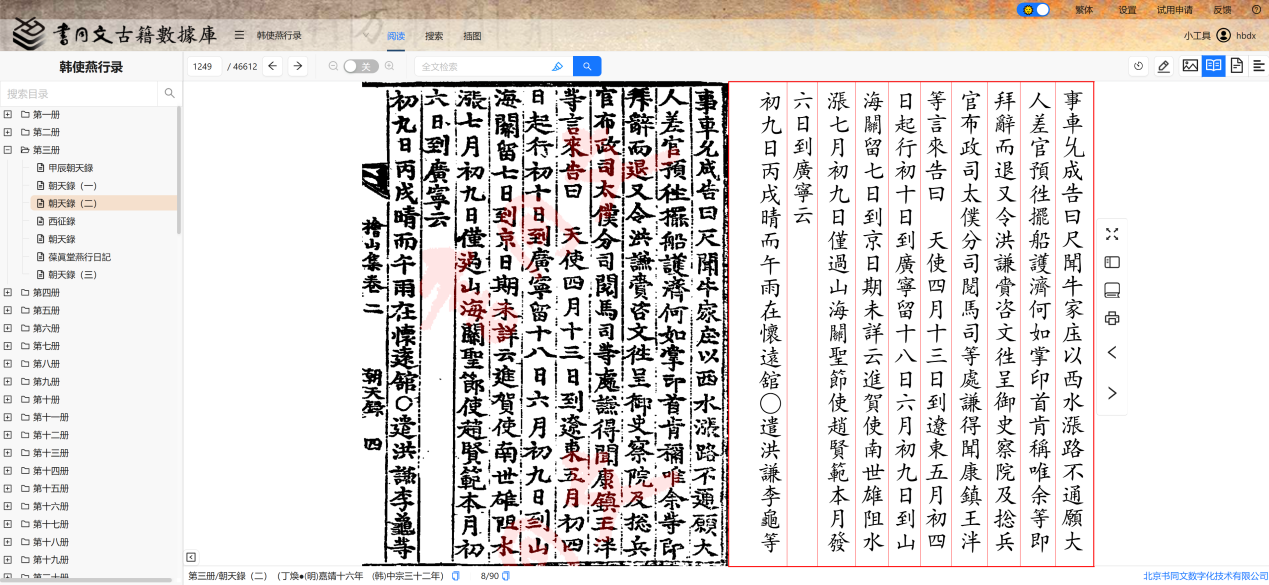 繁体 设置 试用申请 反馈
書同文古籍數據庫 韩使燕行录 阅读 搜索 插图 小工具 hbdx
韩使燕行录
1249 / 46612 关 全文检索
搜索目录
第一册
第二册
第三册
甲辰朝天錄
朝天錄（一）
朝天錄（二）
西征錄
朝天錄
葆真堂燕行日記
朝天錄（三）
第四册
第五册
第六册
第七册
第八册
第九册
第十册
第十一册
第十二册
第十三册
第十四册
第十五册
第十六册
第十七册
第十八册
第十九册
第二十册
事車允成告曰尺聞牛家庄以西水漲路不通願大
人差官預徃擺船護濟何如掌印首肯稱唯余等即
拜辭而退又令洪謙賫咨文徃呈御史察院及捴兵
官布政司太僕分司閱馬司等處謙得聞康鎮王泮
等言來告曰 天使四月十三日到遼東五月初四
日起行初十日到廣寧留十八日六月初九日到山
海關留七日到京日期未詳云進賀使南世雄阻水
漲七月初九日僅過山海關聖節使趙賢範本月初
六日到廣寧云
初九日丙戌晴而午雨在懷遠舘○遣洪謙李龜等
檜山集卷二 朝天錄 四
事車允成告曰尺聞牛家庄以西水漲路不通願大
人差官預徃擺船護濟何如掌印首肯稱唯余等即
拜辭而退又令洪謙賫咨文徃呈御史察院及捴兵
官布政司太僕分司閱馬司等處謙得聞康鎮王泮
等言來告曰 天使四月十三日到遼東五月初四
日起行初十日到廣寧留十八日六月初九日到山
海關留七日到京日期未詳云進賀使南世雄阻水
漲七月初九日僅過山海關聖節使趙賢範本月發
六日到廣寧云
初九日丙戌晴而午雨在懷遠舘○遣洪謙李龜等
第三册/朝天錄（二）（丁煥●(明)嘉靖十六年 (韩)中宗三十二年） 8/90
北京书同文数字化技术有限公司